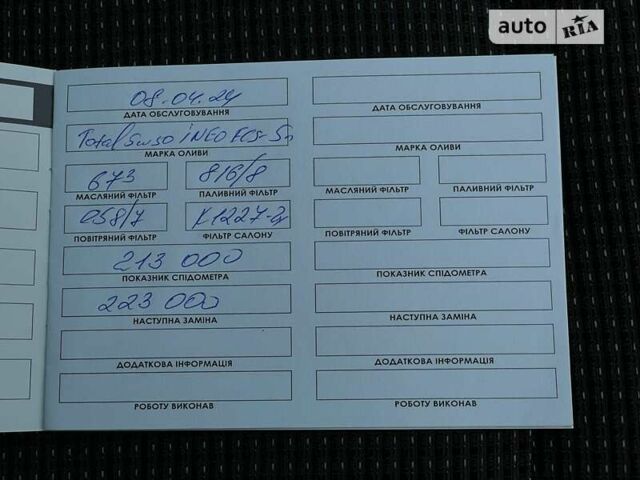 auto RIA
08.04.24
ДАТА ОБСЛУГОВУВАННЯ
ДАТА ОБСЛУГОВУВАННЯ
Total 5w30 iNEO ECS
МАРКА ОЛИВИ
МАРКА ОЛИВИ
673 816/8
МАСЛЯНИЙ ФІЛЬТР ПАЛИВНИЙ ФІЛЬТР
МАСЛЯНИЙ ФІЛЬТР ПАЛИВНИЙ ФІЛЬТР
058/7 K1227
ПОВІТРЯНИЙ ФІЛЬТР ФІЛЬТР САЛОНУ
ПОВІТРЯНИЙ ФІЛЬТР ФІЛЬТР САЛОНУ
213 000
ПОКАЗНИК СПІДОМЕТРА
ПОКАЗНИК СПІДОМЕТРА
223 000
НАСТУПНА ЗАМІНА
НАСТУПНА ЗАМІНА
ДОДАТКОВА ІНФОРМАЦІЯ
ДОДАТКОВА ІНФОРМАЦІЯ
РОБОТУ ВИКОНАВ
РОБОТУ ВИКОНАВ